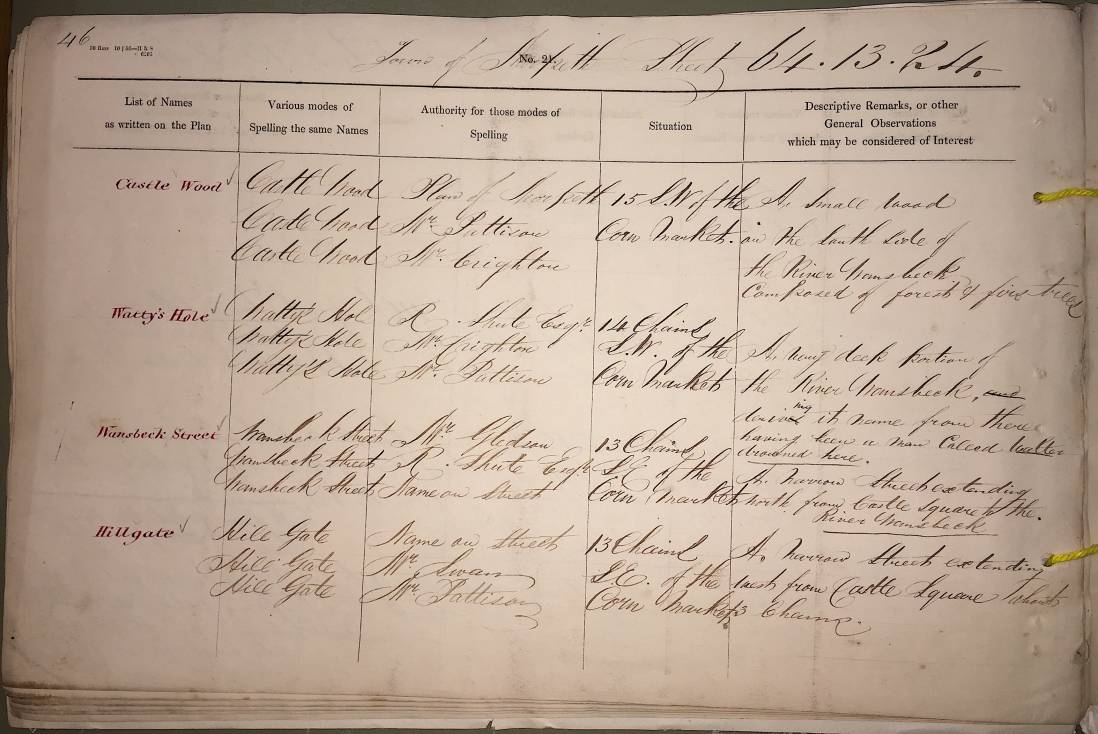 46
No. 21.
Town of Morpeth Sheet 64.13.24.
List of Names
as written on the Plan
Various modes of
Spelling the same Names
Authority for those modes of
Spelling
Situation
Descriptive Remarks, or other
General Observations
which may be considered of Interest
Castle Wood
Castle Wood
Castle Wood
Castle Wood
Plan of Morpeth
Mr. Pattison
Mr. Crighton
15 S.W of the
Corn Market.
A small wood
on the South side of
the River Wansbeck
Composed of forest & firs trees
Watty's Hole
Watty's Hol
Watty's Hole
Watty's Hole
R. Shute Esqr.
Mr. Crighton
Mr. Pattison
14 Chains
S.W. of the
Corn Market
A very deek portion of
the River Wansbeck, and
deriving it name from there
having been a man Called Walter
drowned here.
Wansbeck Street
Wansbeck Street
Wansbeck Street
Wansbeck Street
Mr. Gledson
R. Shute Esqr.
Name on Street
13 Chains
S.E. of the
Corn Market
A narrow Street extending
north from Castle Square to the.
River Wansbeck
Hillgate
Hill Gate
Hill Gate
Hill Gate
Name on Street
Mr. Swan
Mr. Pattison
13 Chains
S.E. of the
Corn Market
A. narrow Street extending
west from Castle Square about
3 Chains.